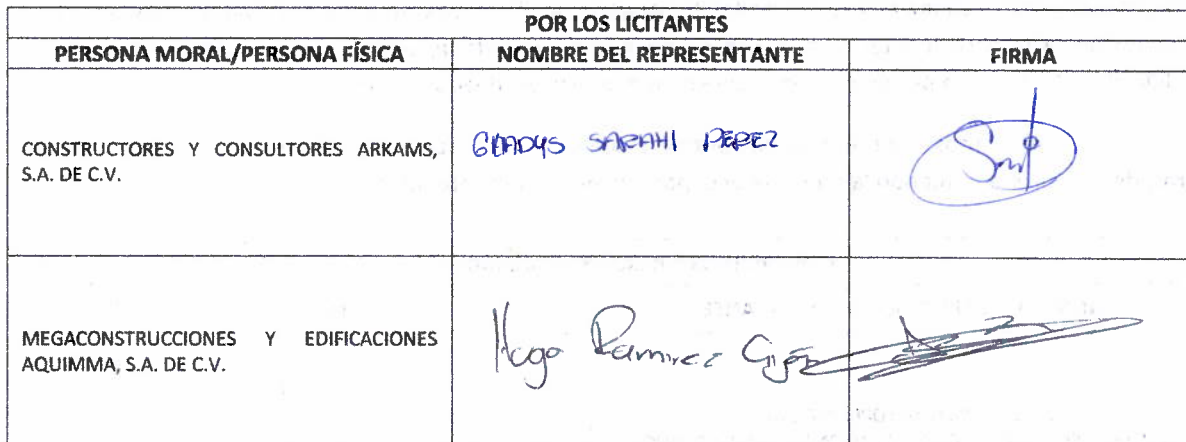 POR LOS LICITANTES
PERSONA MORAL/PERSONA FÍSICA NOMBRE DEL REPRESENTANTE FIRMA
CONSTRUCTORES Y CONSULTORES ARKAMS,
S.A. DE C.V.
GLADYS SARAHI PEREZ
MEGACONSTRUCCIONES Y EDIFICACIONES
AQUIMMA, S.A. DE C.V.
Hugo Ramirez